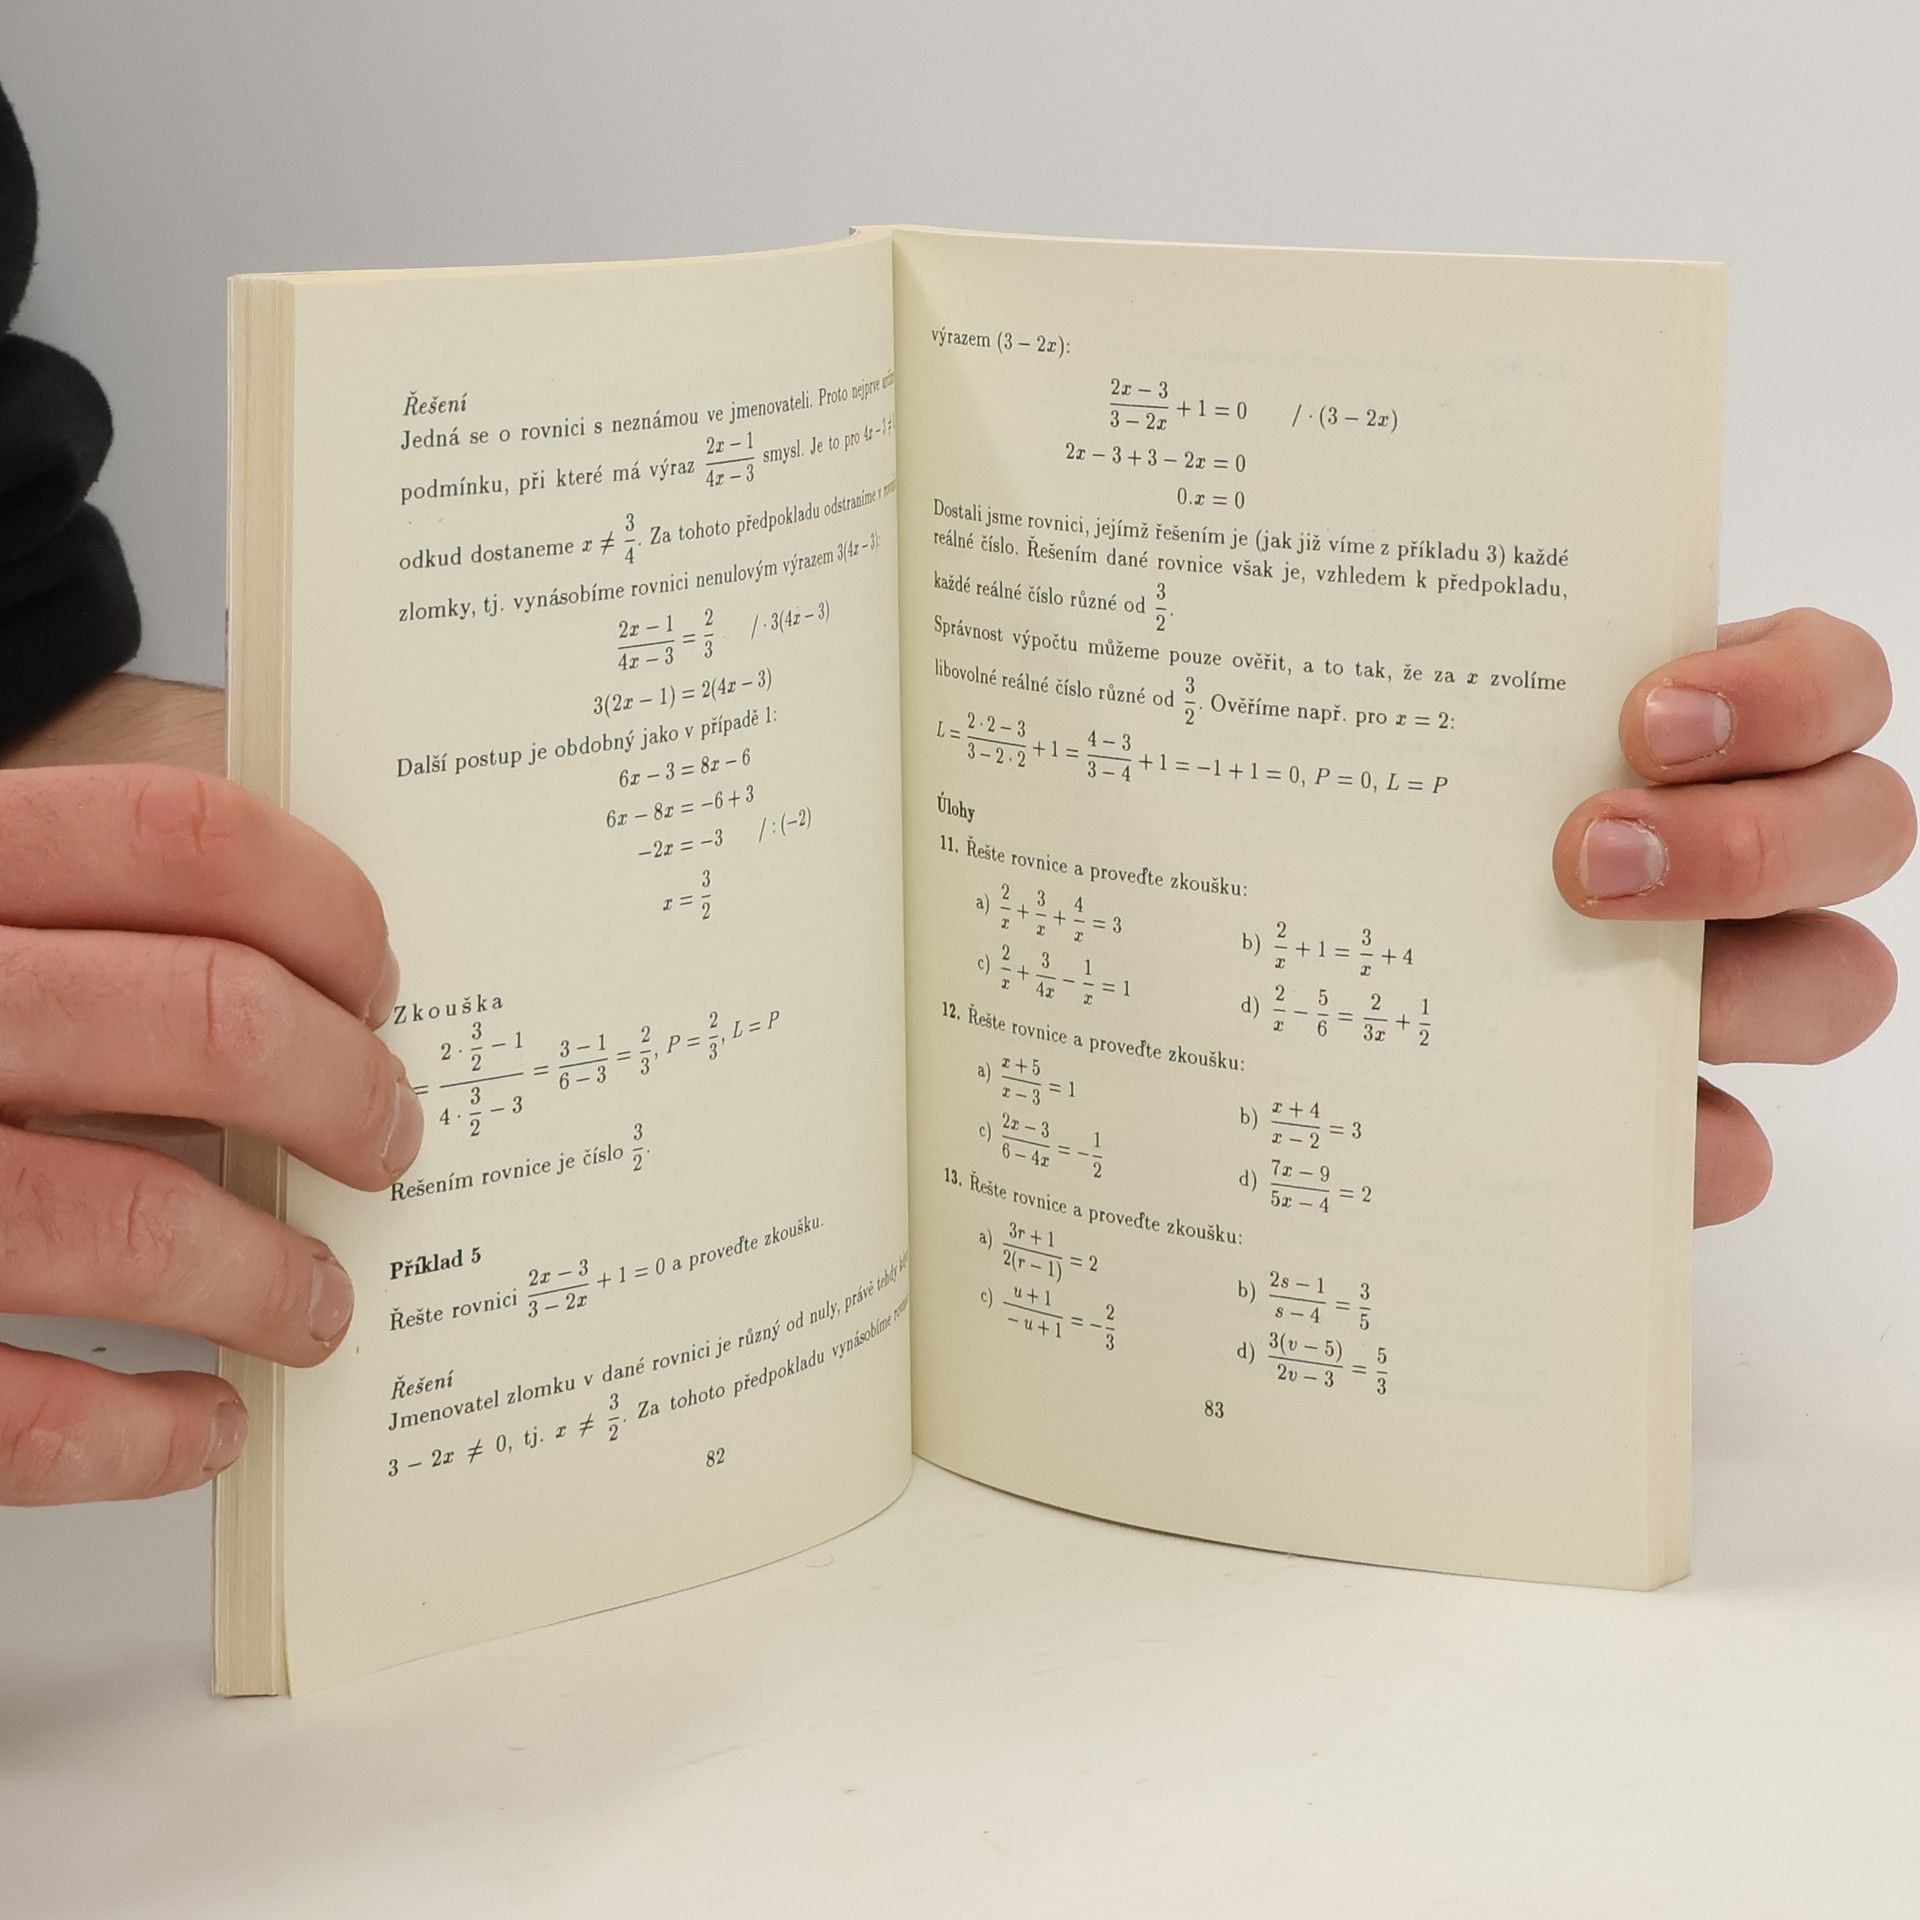 Řešení
Jedná se o rovnici s neznámou ve jmenovateli. Proto nejprve
podmínku, při které má výraz (2x − 1)/(4x − 3) smysl. Je to pro 4x − 3 ≠
odkud dostaneme x ≠ 3/4. Za tohoto předpokladu odstraníme v
zlomky, tj. vynásobíme rovnici nenulovým výrazem 3(4x − 3):
(2x − 1)/(4x − 3) = 2/3 / · 3(4x − 3)
3(2x − 1) = 2(4x − 3)
Další postup je obdobný jako v případě 1:
6x − 3 = 8x − 6
6x − 8x = −6 + 3
−2x = −3 / : (−2)
x = 3/2
Zkouška
= (2 · 3/2 − 1)/(4 · 3/2 − 3) = (3 − 1)/(6 − 3) = 2/3, P = 2/3, L = P
Řešením rovnice je číslo 3/2.
Příklad 5
Řešte rovnici (2x − 3)/(3 − 2x) + 1 = 0 a proveďte zkoušku.
Řešení
Jmenovatel zlomku v dané rovnici je různý od nuly, právě tehdy když
3 − 2x ≠ 0, tj. x ≠ 3/2. Za tohoto předpokladu vynásobíme
82
výrazem (3 − 2x):
(2x − 3)/(3 − 2x) + 1 = 0 / · (3 − 2x)
2x − 3 + 3 − 2x = 0
0.x = 0
Dostali jsme rovnici, jejímž řešením je (jak již víme z příkladu 3) každé
reálné číslo. Řešením dané rovnice však je, vzhledem k předpokladu,
každé reálné číslo různé od 3/2.
Správnost výpočtu můžeme pouze ověřit, a to tak, že za x zvolíme
libovolné reálné číslo různé od 3/2. Ověříme např. pro x = 2:
L = (2 · 2 − 3)/(3 − 2 · 2) + 1 = (4 − 3)/(3 − 4) + 1 = −1 + 1 = 0, P = 0, L = P
Úlohy
11. Řešte rovnice a proveďte zkoušku:
a) 2/x + 3/x + 4/x = 3 b) 2/x + 1 = 3/x + 4
c) 2/x + 3/4x − 1/x = 1 d) 2/x − 5/6 = 2/3x + 1/2
12. Řešte rovnice a proveďte zkoušku:
a) (x + 5)/(x − 3) = 1 b) (x + 4)/(x − 2) = 3
c) (2x − 3)/(6 − 4x) = −1/2 d) (7x − 9)/(5x − 4) = 2
13. Řešte rovnice a proveďte zkoušku:
a) (3r + 1)/(2(r − 1)) = 2 b) (2s − 1)/(s − 4) = 3/5
c) (u + 1)/(−u + 1) = −2/3 d) (3(v − 5))/(2v − 3) = 5/3
83